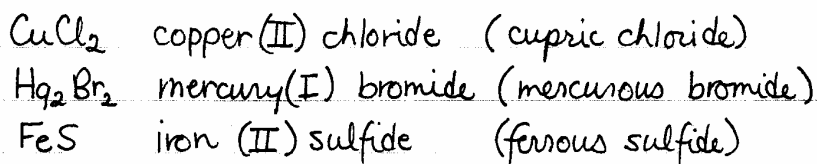 CuCl₂ copper (II) chloride (cupric chloride)
Hg₂Br₂ mercury(I) bromide (mercurous bromide)
FeS iron (II) sulfide (ferrous sulfide)